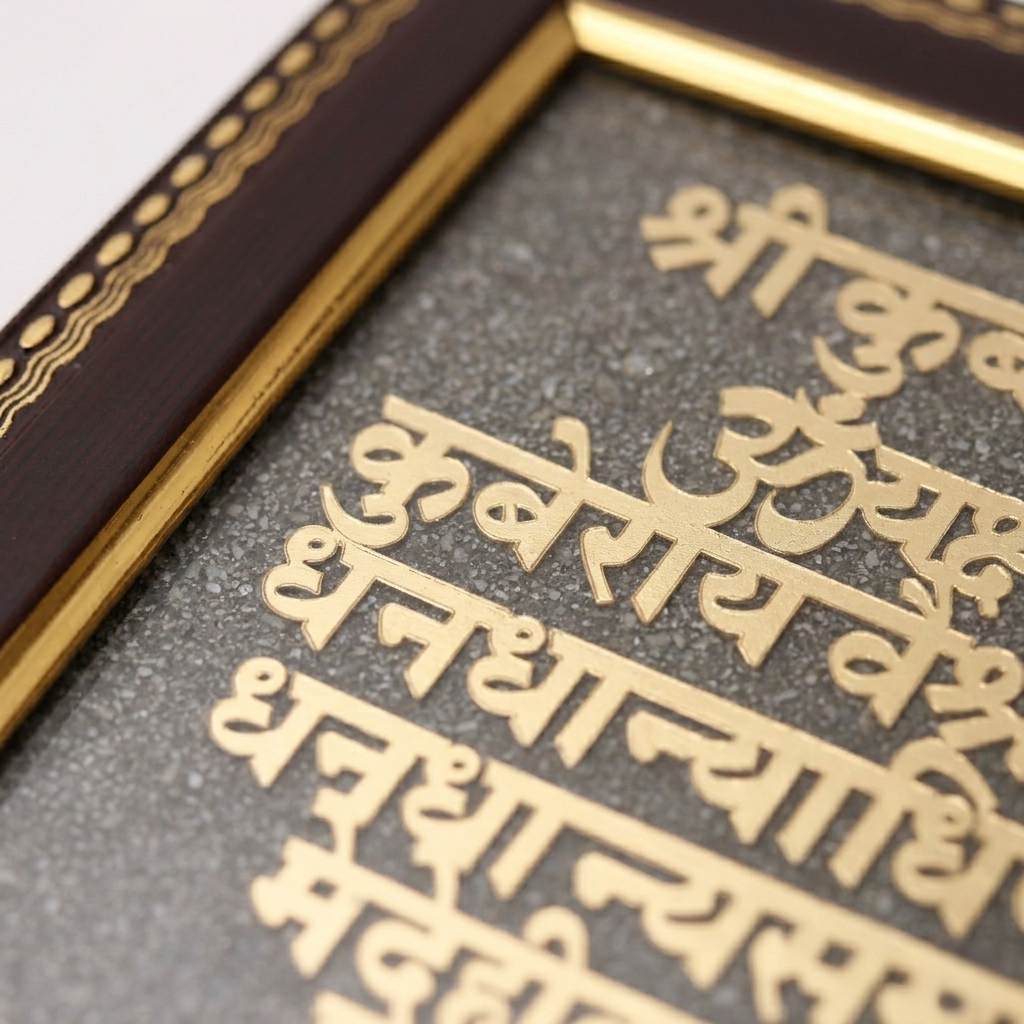 श्री कुब
ॐ यक्ष
कुबेराय वैश्र
धनधान्याधि
धनधान्यसम